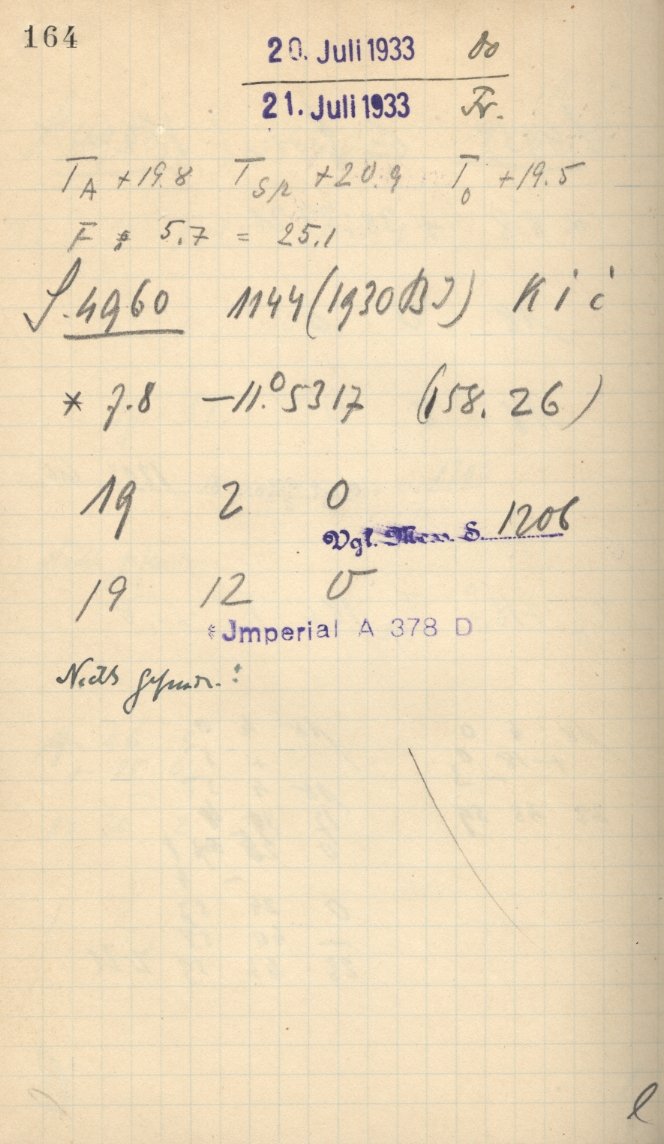 164
20. Juli 1933 Do
21. Juli 1933 Fr.
T_A +19.8 T_Sp +20.9 T_o +19.5
F: 5.7 = 25.1
S. 4960 1144 (1930 BJ)
* 7.8 -11.°5317 (158.26)
19 2 0
Vgl. S. 1206
19 12 0
*Jmperial A 378 D
Nichts gefund.: